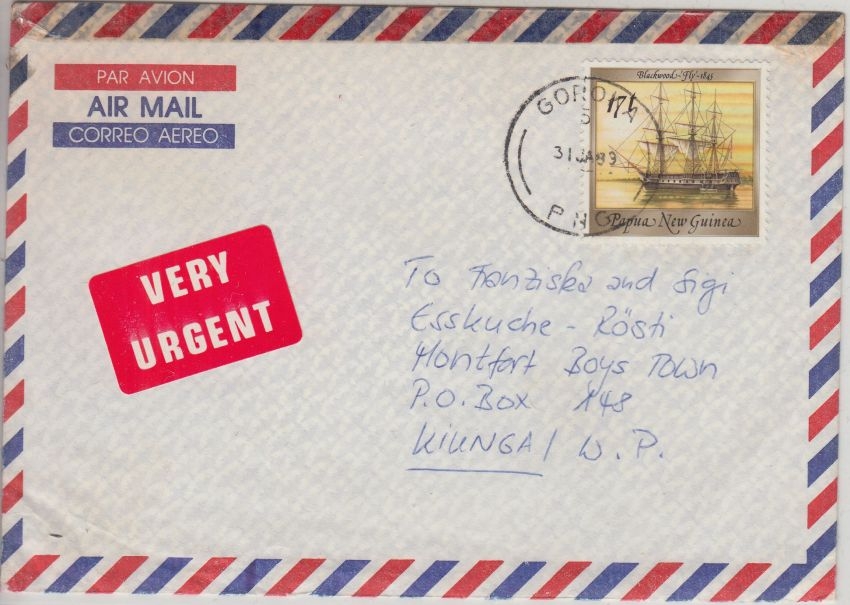 PAR AVION
AIR MAIL
CORREO AEREO
Blackwood-'Fly'-1845
17t
Papua New Guinea
GOROKA
5
31 JA 89
PNG
VERY
URGENT
To Franziska and Sigi
Esskuche - Rösti
Montfort Boys Town
P.O. Box 148
KIUNGA / W. P.